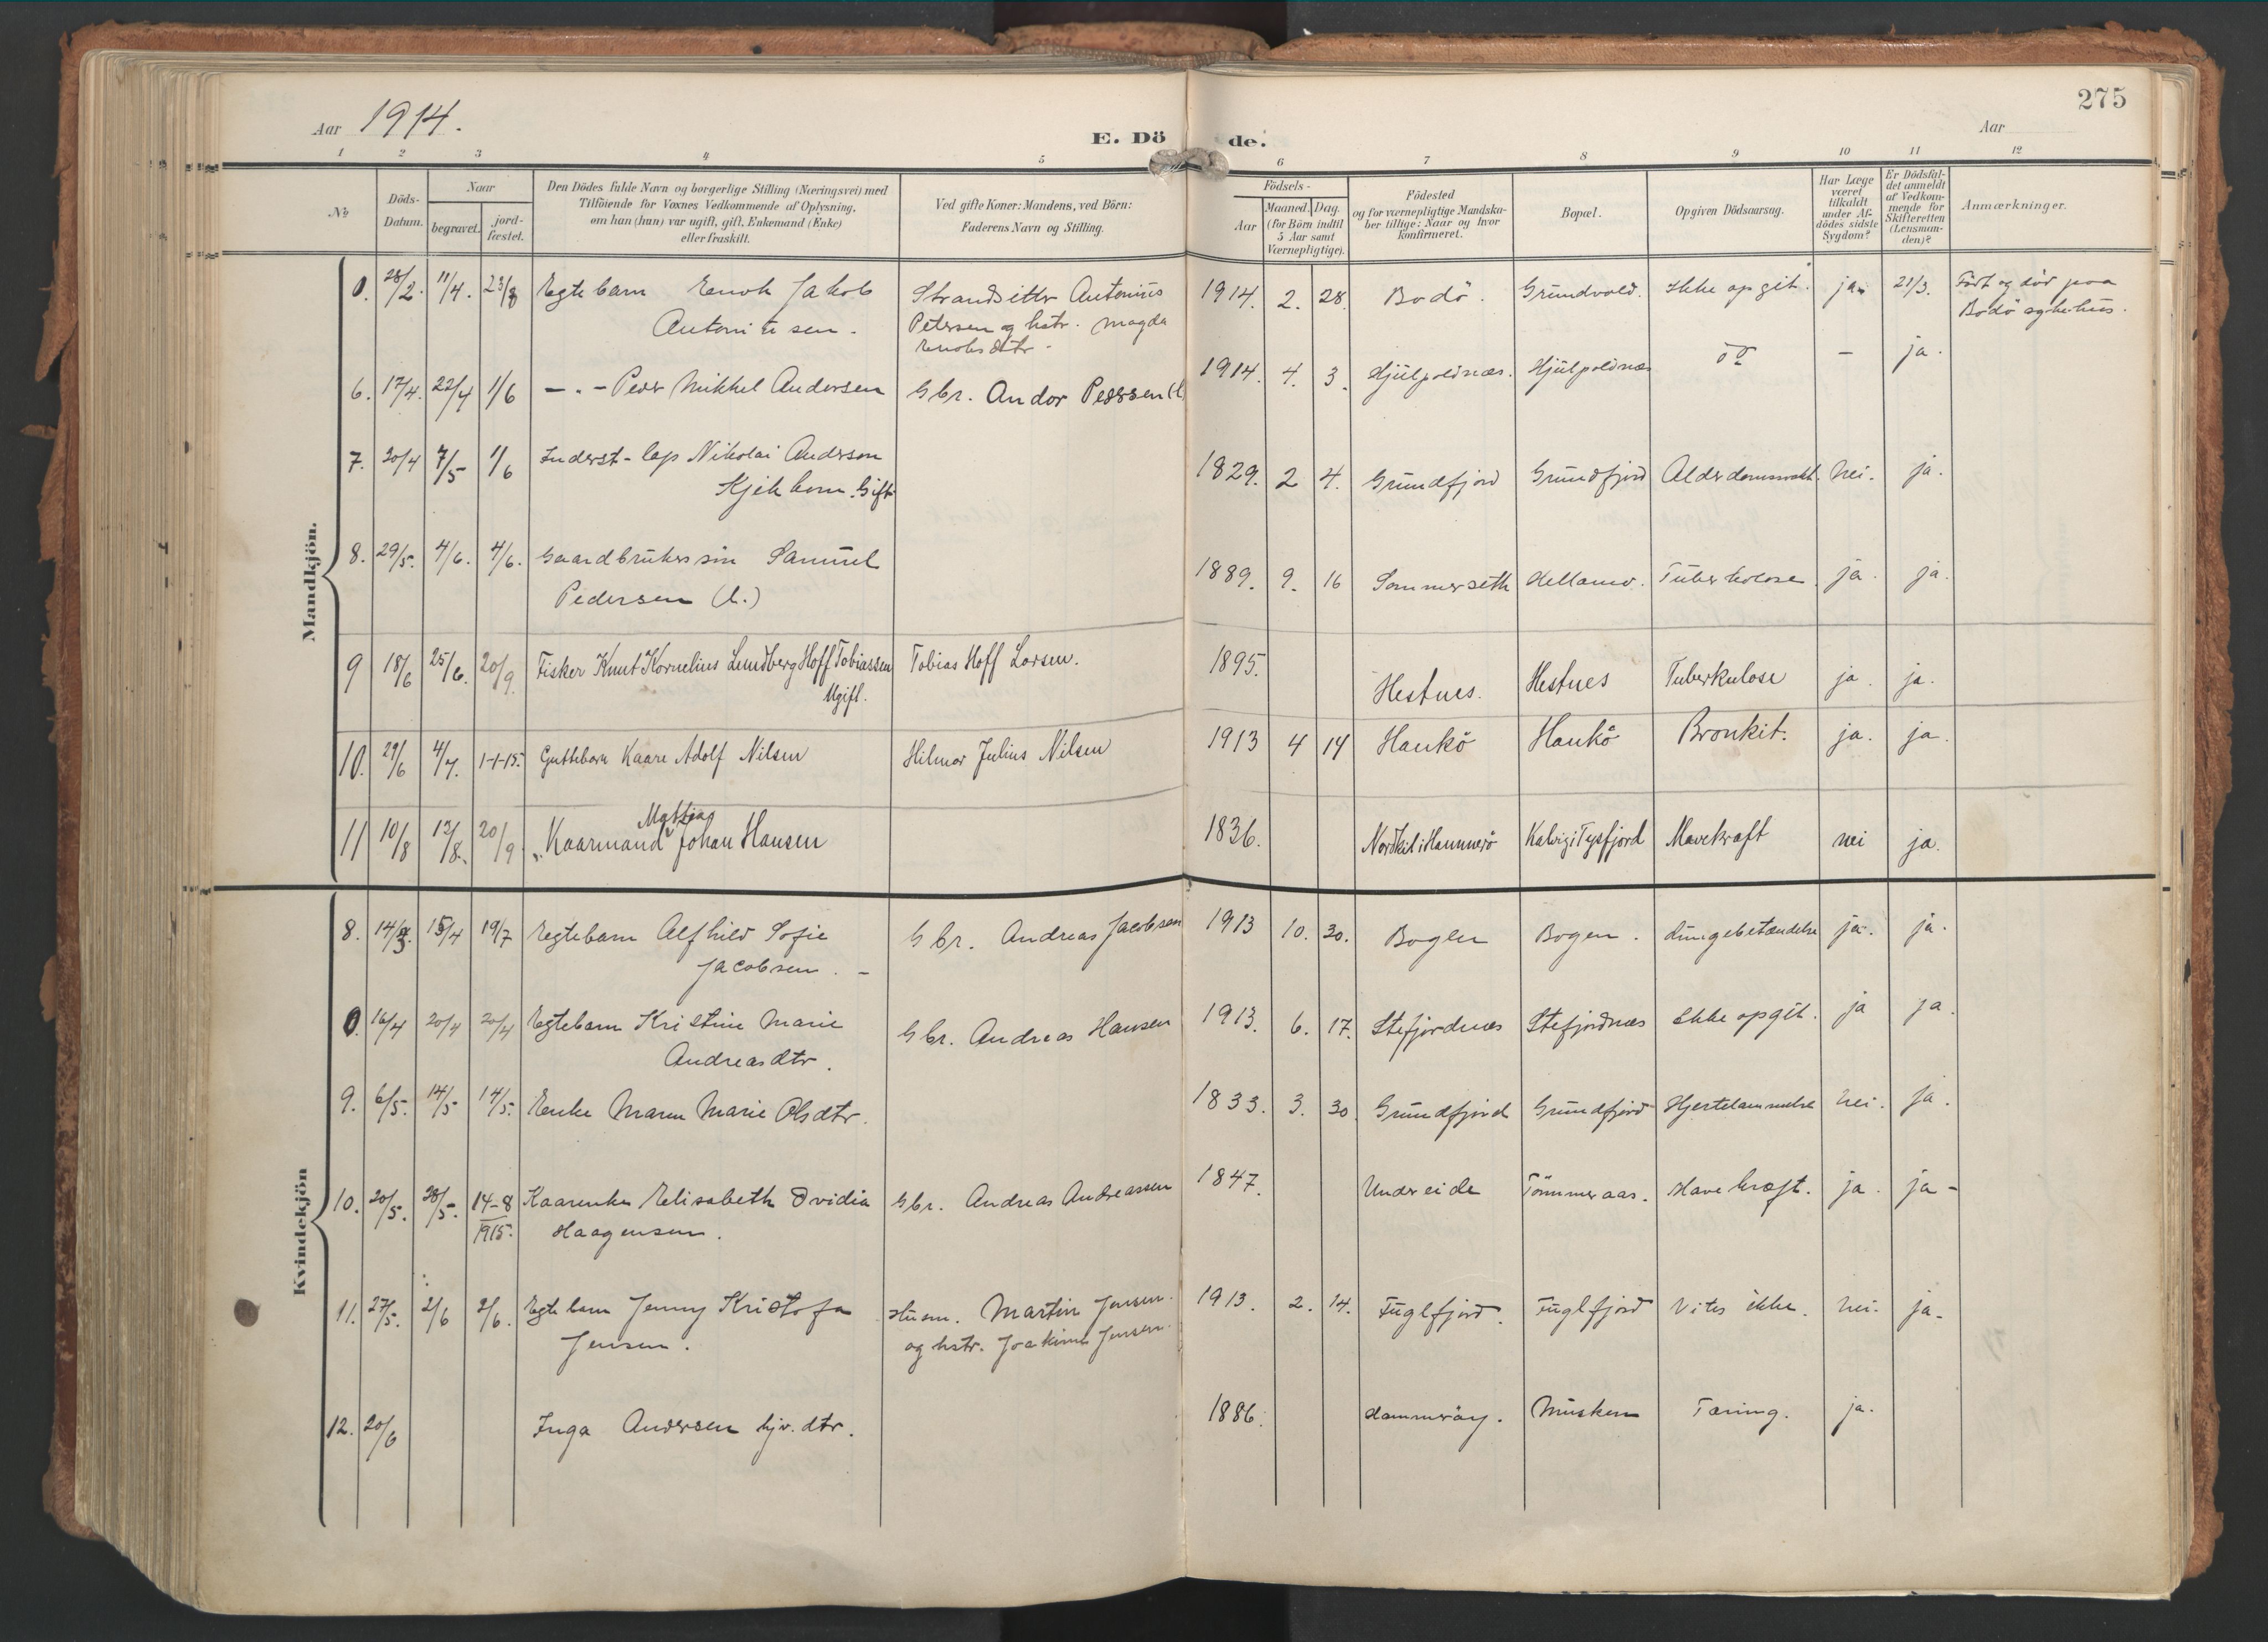 275
Aar 1914.
E. Dö de.
Aar
1 2 3 4 5 6 7 8 9 10 11 12
No
Döds-
Datum.
Naar
begravet.
jord-
fæstet.
Den Dödes fulde Navn og borgerlige Stilling (Næringsvei) med
Tilföiende for Voxnes Vedkommende af Oplysning,
om han (hun) var ugift, gift, Enkemand (Enke)
eller fraskilt.
Ved gifte Koner: Mandens, ved Börn:
Faderens Navn og Stilling.
Födsels-
Aar
Maaned. Dag.
(for Börn indtil
5 Aar samt
Værnepligtige).
Födested
og for værnepligtige Mandska-
ber tillige: Naar og hvor
konfirmeret.
Bopæl.
Opgiven Dödsaarsag.
Har Læge
været
tilkaldt
under Af-
dödes sidste
Sygdom?
Er Dödsfal-
det anmeldt
af Vedkom-
mende for
Skifteretten
(Lensman-
den)?
Anmærkninger.
Mandkjön.
0. 28/2. 11/4. 23/8 Egtebarn Enok Jakob Strandsitter Antonius 1914. 2. 28. Bodö. Grundvold. Ikke opgit. ja. 21/3. Födt og död paa
Antoniusen. Petersen og hstr. Magda Bodö sykehus.
Enoksdtr.
6. 17/4. 22/4 1/6 -"- Peder Mikkel Andersen Gbr. Andor Pedersen (l 1914. 4. 3. Hjulpoldnæs. Hjulpoldnæs do - ja.
7. 20/4 7/5 1/6 Inderst-lap Nikolai Anderson 1829. 2 4. Grundfjord Grundfjord nei. ja.
Gift
8. 29/5. 4/6. 4/6. Gaardbrukersön Samuel 1889. 9. 16 Sommerseth Hellamo. Tuberkolose ja. ja.
Pedersen (l.)
9 18/6 25/6. 20/9. Fisker Knut Kornelius Lundberg Hoff Tobiassen Tobias Hoff Larsen. 1895. Hestnes. Hestnes Tuberkulose ja. ja.
Ugift.
10. 29/6 4/7. 1-1-15. Guttebarn Kaare Adolf Nilsen Hilmar Julius Nilsen 1913 4 14 Haukö Haukö Bronkit. ja. ja.
Mattias
11 10/8 13/8. 20/9 Kaarmand Johan Hansen 1836. Nordkil i Hammerö Kalvig i Tysfjord Mavekræft nei ja.
Kvindekjön
8. 14/3. 15/4 19/7 Egtebarn Alfhild Sofie Gbr. Andreas Jacobsen 1913 10. 30. Bogen Bogen. Lungebetændelse ja. ja.
Jacobsen. -
0. 16/4 20/4 20/4 Egtebarn Kristine Marie Gbr. Andreas Hansen 1913. 6. 17. Stefjordnæs Stefjordnæs Ikke opgit. ja ja.
Andreasdtr.
9. 6/5. 14/5 14/5. Enke Maren Marie Olsdtr. 1833. 3. 30. Grundfjord Grundfjord Hjertelammelse nei. ja.
10. 20/5. 28/5. 14-8 Kaarenke Elisabeth Ovidia Gbr. Andreas Andreassen 1847. Undereide Tömmeraas. Mavekræft. ja. ja-
1915. Haagensen.
11. 27/5. 2/6 2/6. Egtebarn Jenny Kristofa Husm. Martin Jensen. 1913. 2. 14. Fuglfjord. Fuglfjord Vites ikke. nei. ja-
Jensen. og hstr. Joakime Jensen.
12. 20/6 Inga Andersen hjv. dtr. 1886. Hammeröy. Musken Tæring. ja.